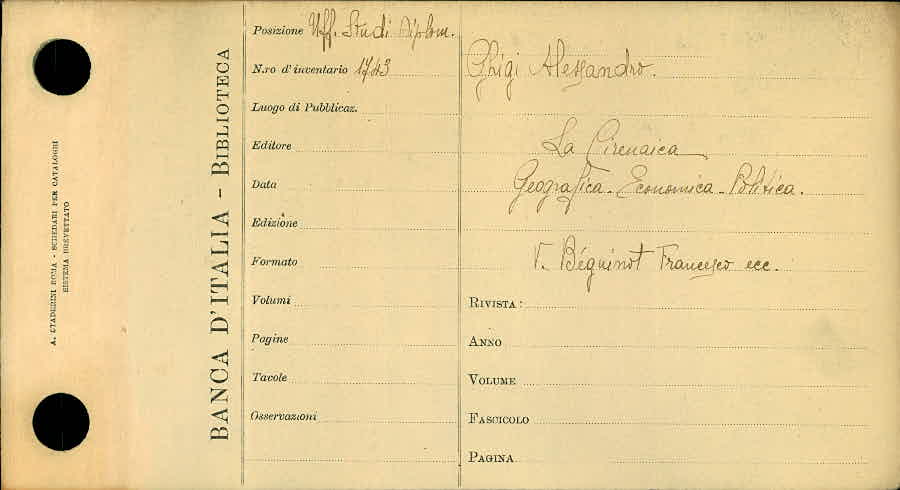 A. STADERINI ROMA - SCHEDARI PER CATALOGHI
SISTEMA BREVETTATO
BANCA D'ITALIA - BIBLIOTECA
Posizione Uff. Studi Diplom.
N.ro d'inventario 1743
Luogo di Pubblicaz.
Editore
Data
Edizione
Formato
Volumi
Pagine
Tavole
Osservazioni
Ghigi Alessandro.
La Cirenaica
Geografica - Economica - Politica.
V. Béguinot Francesco ecc.
RIVISTA:
ANNO
VOLUME
FASCICOLO
PAGINA